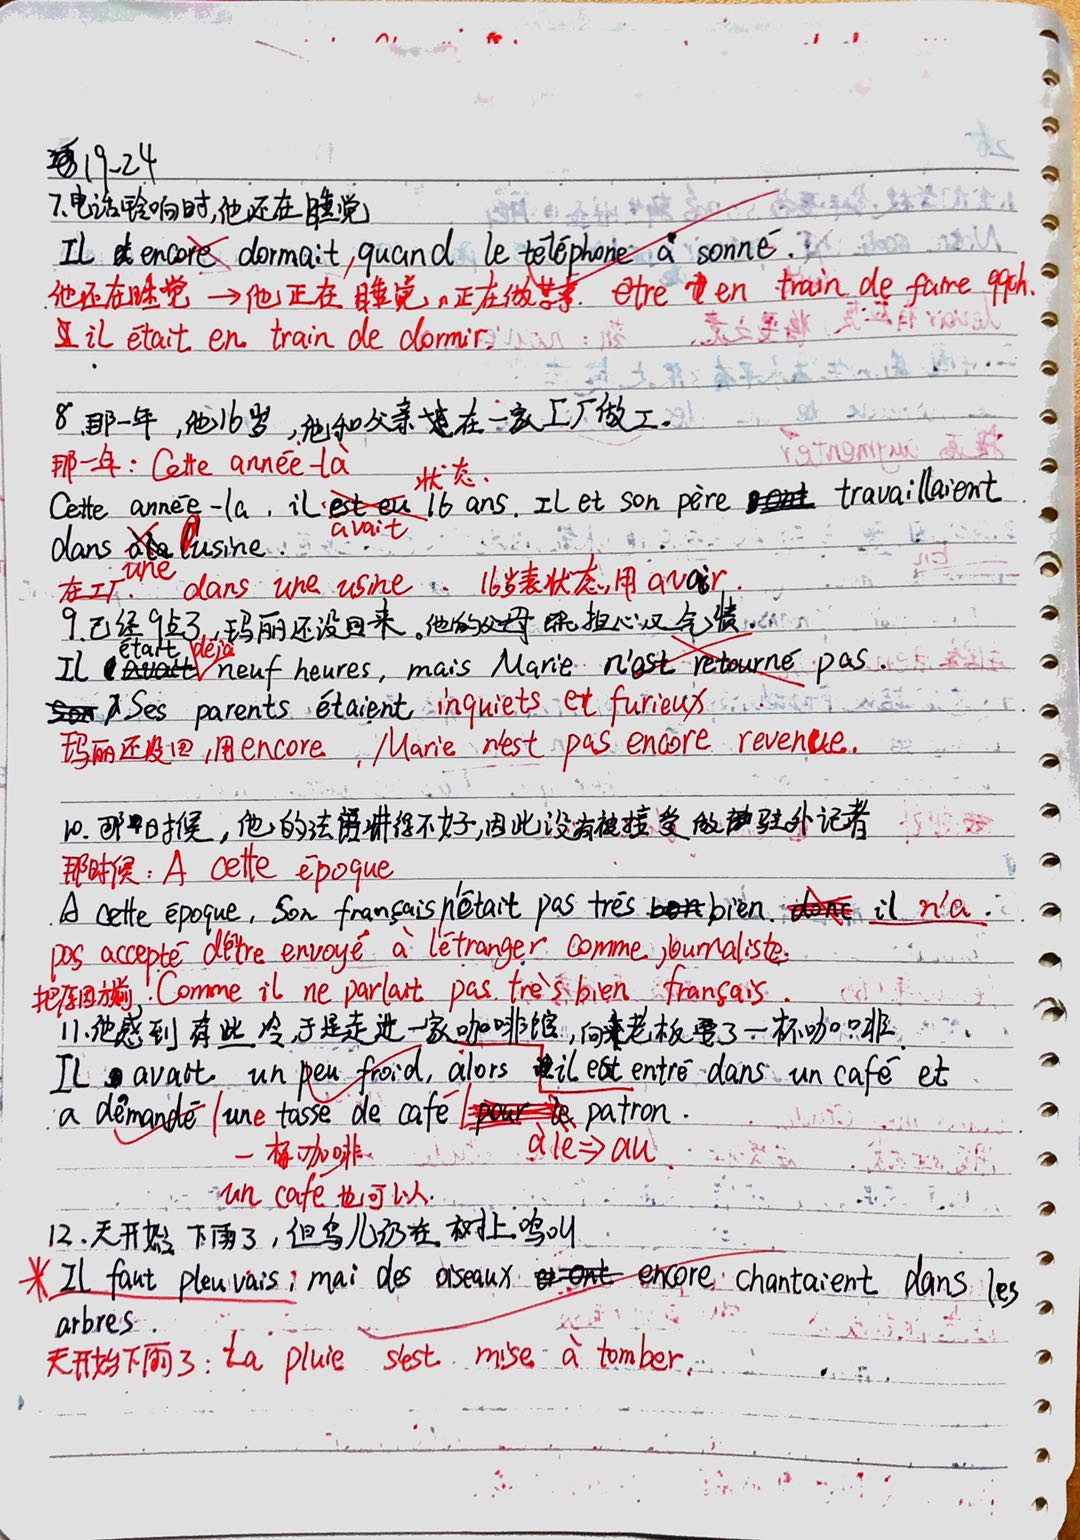 19-24
7.电话铃响时,他还在睡觉
Il encore dormait, quand le téléphone a sonné.
他还在睡觉 → 他正在睡觉。正在做某事. être en train de faire qqch.
il était en train de dormir.
8.那一年,他16岁,他和父亲在一家工厂做工.
那一年: Cette année-là
状态.
Cette année-la, il est eu 16 ans. Il et son père travaillaient
avait
dans à la l'usine.
une
在工厂. dans une usine. 16岁表状态,用avoir.
9.已经9点了,玛丽还没回来。他的父母既担心又气愤.
était déjà
Il avait neuf heures, mais Marie n'est retourné pas.
Son Ses parents étaient inquiets et furieux
玛丽还没回,用encore. Marie n'est pas encore revenue.
10.那时候,他的法语讲得不好,因此没有被接受做驻外记者
那时候: A cette époque
A cette époque, Son français n'était pas très bon bien. donc il n'a
pas accepté d'être envoyé à l'étranger comme journaliste.
把原因方前! Comme il ne parlait pas très bien français.
11.他感到有些冷,于是走进一家咖啡馆,向老板要了一杯咖啡.
Il avait un peu froid, alors il est entré dans un café et
a démandé une tasse de café pour le patron.
一杯咖啡 à le ⇒ au
un café 也可以.
12.天开始下雨了,但鸟儿仍在树上鸣叫
Il faut pleuvais, mai des oiseaux ont encore chantaient dans les
arbres.
天开始下雨了: La pluie s'est mise à tomber.